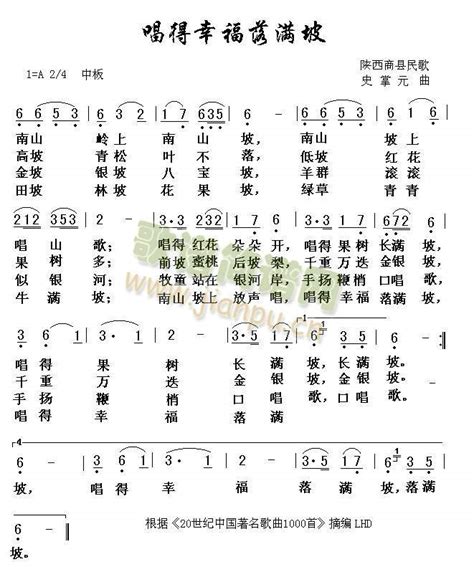 唱得幸福落满坡
1=A 2/4 中板
陕西商县民歌
史掌元 曲
6 6 5 3 6 6 5 3 6 6 6 6 5 3 6 5 3
南山 岭上 南山 坡, 南山 坡上
高坡 青松 叶不 落, 低坡 红花
金坡 银坡 八宝 坡, 羊群 滚滚
田坡 林坡 花果 坡, 绿草 青青
212 353 | 2 - | 3·3 232 | 1 7 6 | 3·3 1 7 | 6·672 | 6 -
唱山歌; 唱得红花 朵朵开, 唱得果树 长满坡,
果树多; 前坡蜜桃 后坡梨, 千重万迭 金银坡,
似银河; 牧童站在 银河岸, 手扬鞭梢 口唱歌,
牛满坡; 南山坡上 放声唱, 唱得幸福 落满坡,
唱得果树长满坡。
千重万迭金银坡,金银坡。
手扬鞭梢口唱歌,口唱歌。
唱得幸福落满
坡, 唱得幸福落满坡,落满
坡。
根据《20世纪中国著名歌曲1000首》摘编LHD
歌谱简谱网
www.jianpu.cn